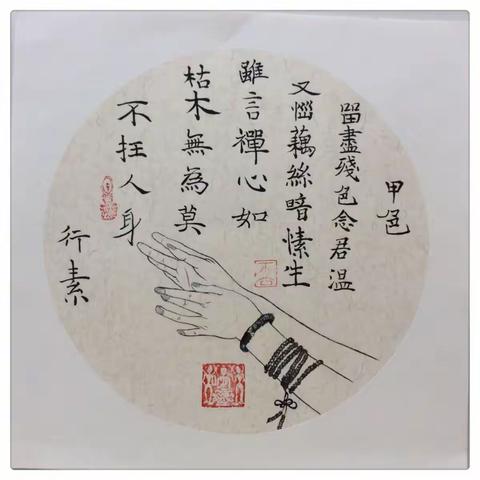 甲色
留盡殘色念君溫
又惱藕絲暗愫生
雖言禪心如
枯木無為莫
不枉人身
行素